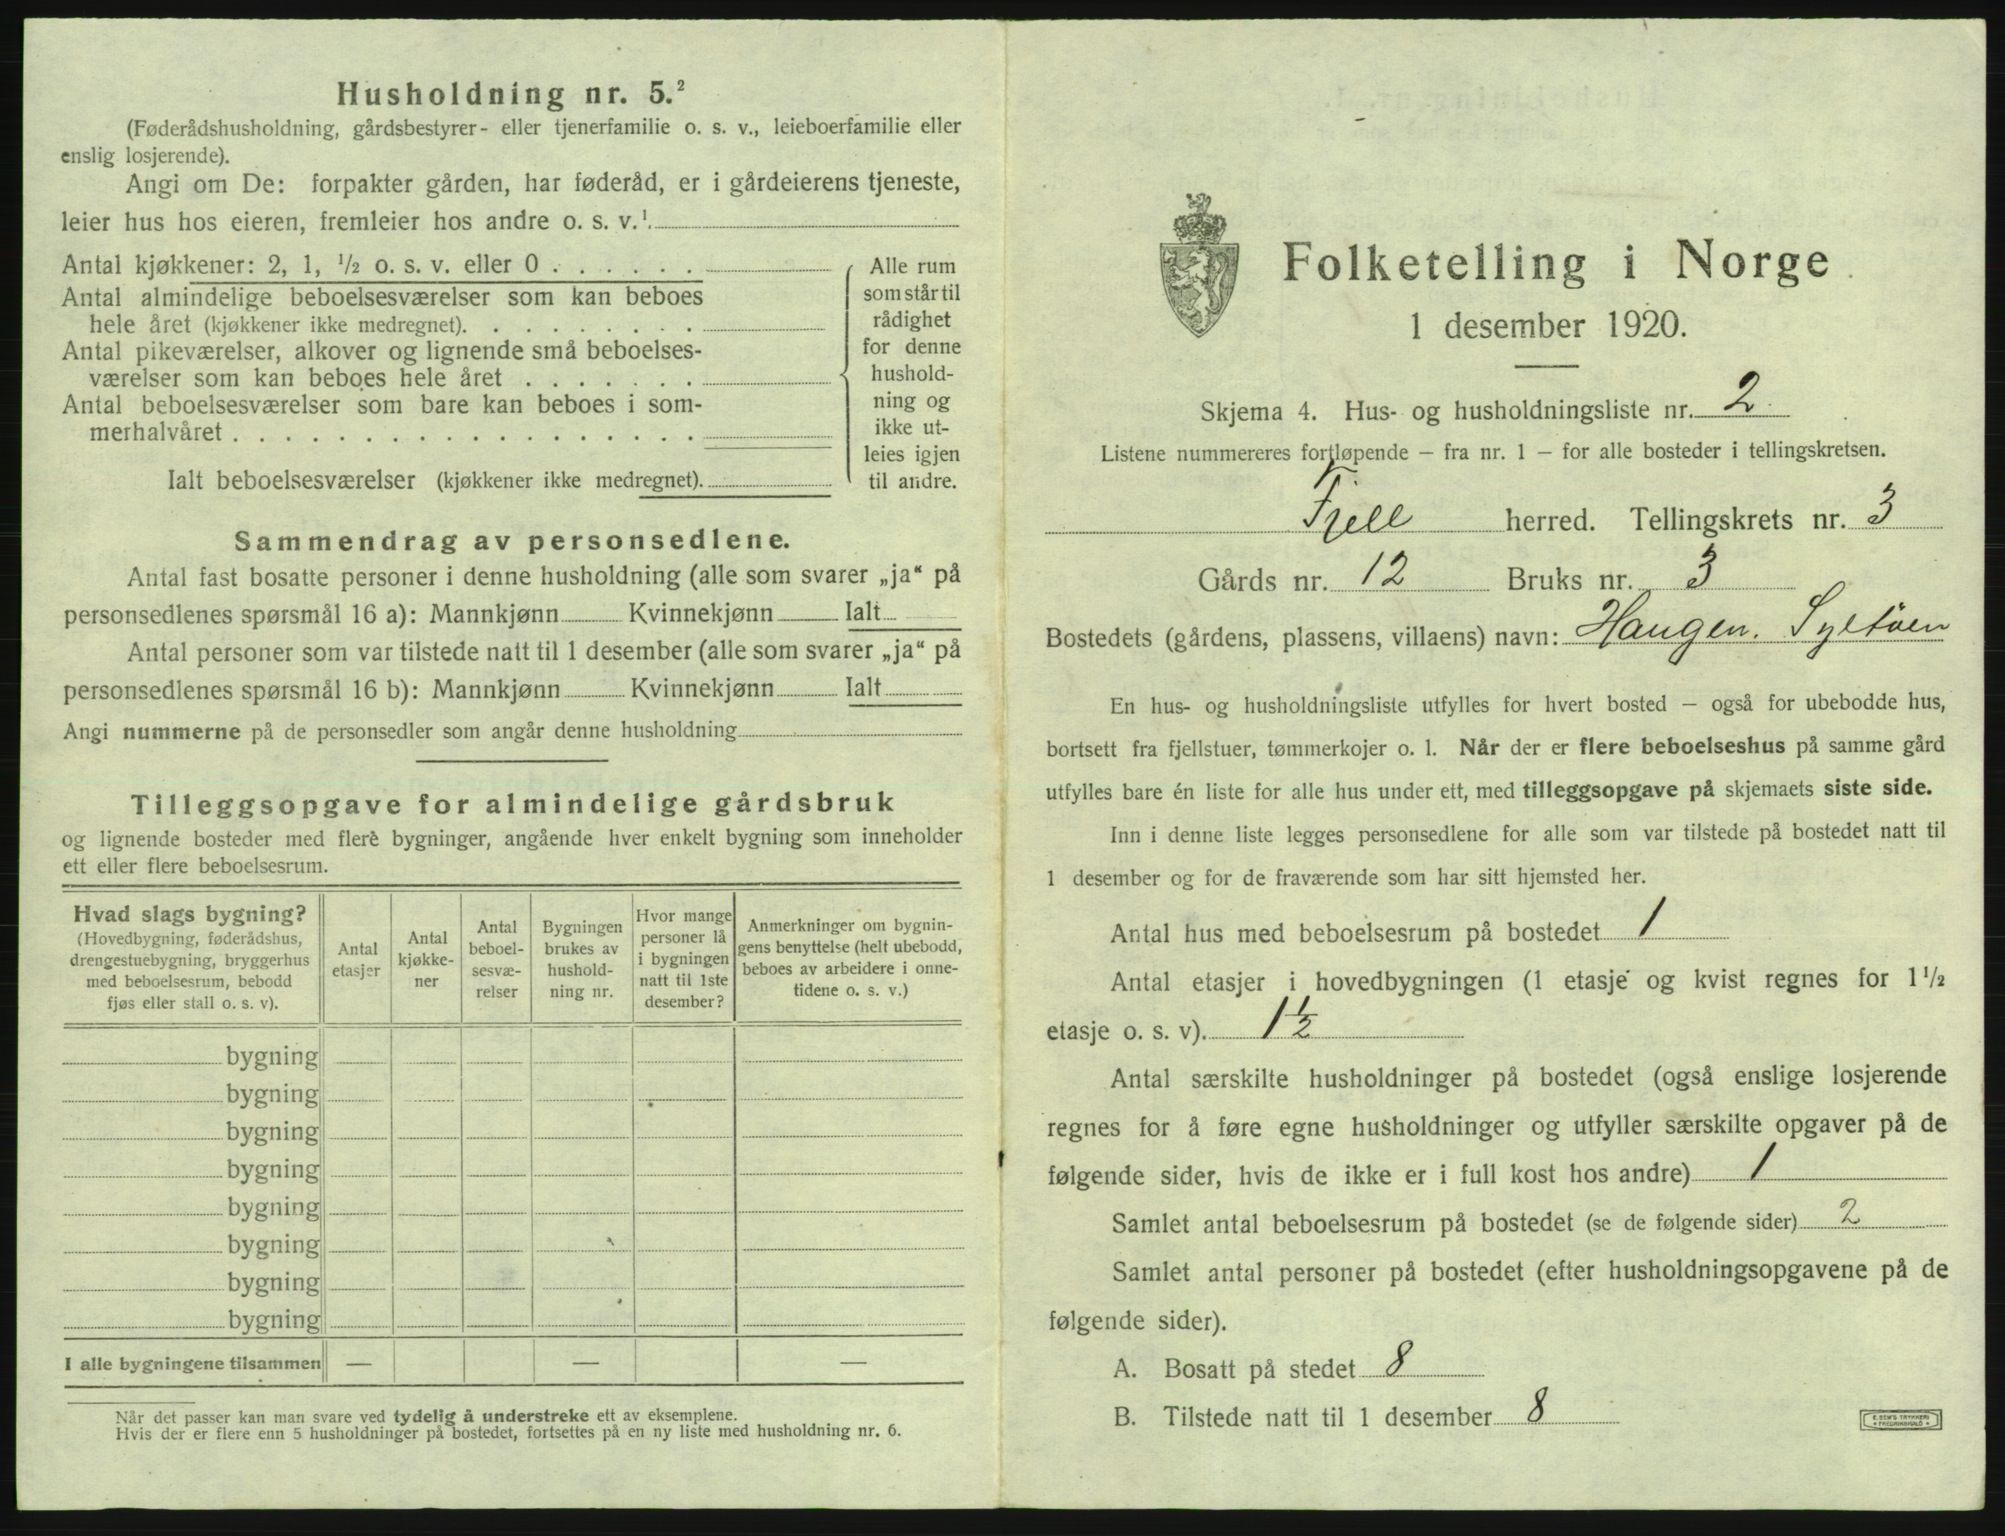 Husholdning nr. 5.²
(Føderådshusholdning, gårdsbestyrer- eller tjenerfamilie o. s. v., leieboerfamilie eller
enslig losjerende).
Angi om De: forpakter gården, har føderåd, er i gårdeierens tjeneste,
leier hus hos eieren, fremleier hos andre o. s. v.¹
Antal kjøkkener: 2, 1, ½ o. s. v. eller 0 . . . . . .
Antal almindelige beboelsesværelser som kan beboes
hele året (kjøkkener ikke medregnet). . . . . . . . .
Antal pikeværelser, alkover og lignende små beboelses-
værelser som kan beboes hele året . . . . . . .
Antal beboelsesværelser som bare kan beboes i som-
merhalvåret . . . . . . . . . . . . . . . . . .
Ialt beboelsesværelser (kjøkkener ikke medregnet).
Alle rum
som står til
rådighet
for denne
hushold-
ning og
ikke ut-
leies igjen
til andre.
Sammendrag av personsedlene.
Antal fast bosatte personer i denne husholdning (alle som svarer „ja“ på
personsedlenes spørsmål 16 a): Mannkjønn Kvinnekjønn Ialt
Antal personer som var tilstede natt til 1 desember (alle som svarer „ja“ på
personsedlenes spørsmål 16 b): Mannkjønn Kvinnekjønn Ialt
Angi nummerne på de personsedler som angår denne husholdning
Tilleggsopgave for almindelige gårdsbruk
og lignende bosteder med flere bygninger, angående hver enkelt bygning som inneholder
ett eller flere beboelsesrum.
Hvad slags bygning?
(Hovedbygning, føderådshus,
drengestuebygning, bryggerhus
med beboelsesrum, bebodd
fjøs eller stall o. s. v).
Antal
etasjer
Antal
kjøkke-
ner
Antal
beboel-
sesvæ-
relser
Bygningen
brukes av
hushold-
ning nr.
Hvor mange
personer lå
i bygningen
natt til 1ste
desember?
Anmerkninger om bygnin-
gens benyttelse (helt ubebodd,
beboes av arbeidere i onne-
tidene o. s. v.)
bygning
bygning
bygning
bygning
bygning
bygning
bygning
bygning
I alle bygningene tilsammen — — —
Når det passer kan man svare ved tydelig å understreke ett av eksemplene.
Hvis der er flere enn 5 husholdninger på bostedet, fortsettes på en ny liste med husholdning nr. 6.
Folketelling i Norge
1 desember 1920.
Skjema 4. Hus- og husholdningsliste nr. 2
Listene nummereres fortløpende — fra nr. 1 — for alle bosteder i tellingskretsen.
Fjell herred. Tellingskrets nr. 3
Gårds nr. 12 Bruks nr. 3
Bostedets (gårdens, plassens, villaens) navn: Haugen. Syltøen
En hus- og husholdningsliste utfylles for hvert bosted — også for ubebodde hus,
bortsett fra fjellstuer, tømmerkojer o. l. Når der er flere beboelseshus på samme gård
utfylles bare én liste for alle hus under ett, med tilleggsopgave på skjemaets siste side.
Inn i denne liste legges personsedlene for alle som var tilstede på bostedet natt til
1 desember og for de fraværende som har sitt hjemsted her.
Antal hus med beboelsesrum på bostedet 1
Antal etasjer i hovedbygningen (1 etasje og kvist regnes for 1½
etasje o. s. v). 1½
Antal særskilte husholdninger på bostedet (også enslige losjerende
regnes for å føre egne husholdninger og utfyller særskilte opgaver på de
følgende sider, hvis de ikke er i full kost hos andre) 1
Samlet antal beboelsesrum på bostedet (se de følgende sider) 2
Samlet antal personer på bostedet (efter husholdningsopgavene på de
følgende sider).
A. Bosatt på stedet 8
B. Tilstede natt til 1 desember 8
E. SEM'S TRYKKERI
FREDRIKSHALD